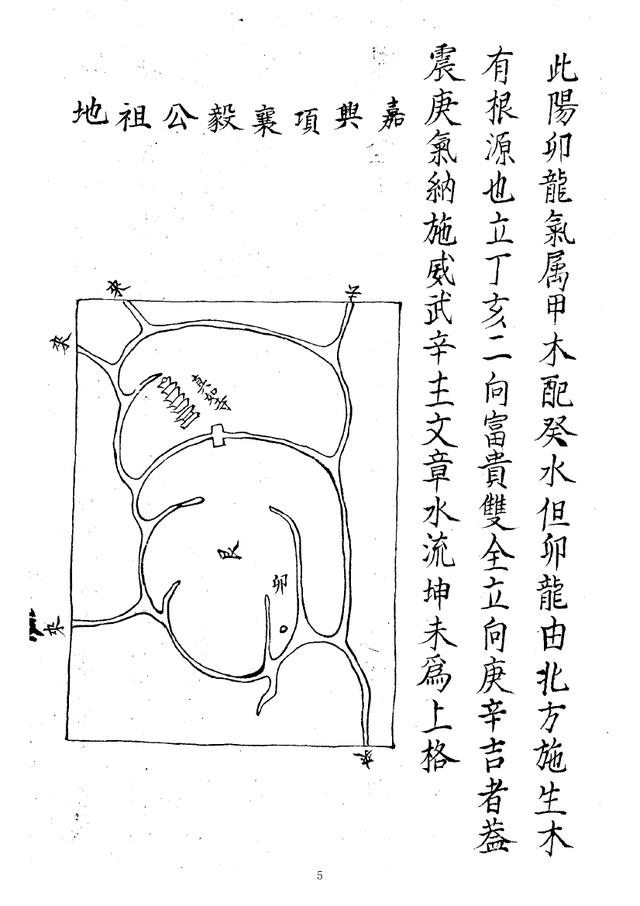 此陽卯龍氣属甲木配癸水但卯龍由北方施生木
有根源也立丁亥二向富貴雙全立向庚辛吉者葢
震庚氣納施威武辛主文章水流坤未爲上格
嘉興項襄毅公祖地
來
來
去
真如寺
艮
卯
來
去
5